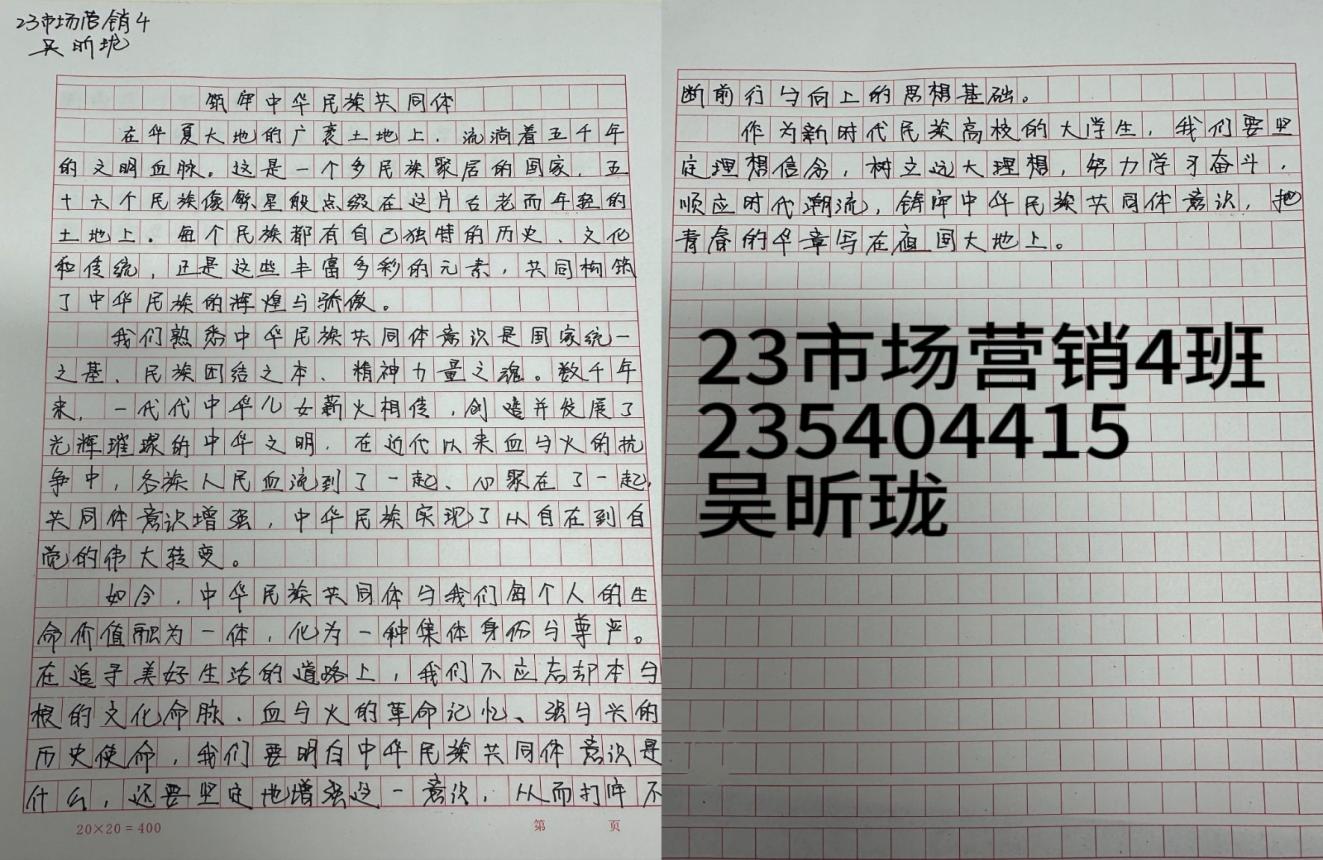 23市场营销4
吴昕珑
筑牢中华民族共同体
在华夏大地的广袤土地上，流淌着五千年
的文明血脉。这是一个多民族聚居的国家，五
十六个民族像繁星般点缀在这片古老而年轻的
土地上。每个民族都有自己独特的历史、文化
和传统，正是这些丰富多彩的元素，共同构筑
了中华民族的辉煌与骄傲。
我们熟悉中华民族共同体意识是国家统一
之基、民族团结之本、精神力量之魂。数千年
来，一代代中华儿女薪火相传，创造并发展了
光辉璀璨的中华文明，在近代以来血与火的抗
争中，各族人民血流到了一起、心聚在了一起，
共同体意识增强，中华民族实现了从自在到自
觉的伟大转变。
如今，中华民族共同体与我们每个人的生
命价值融为一体，化为一种集体身份与尊严。
在追寻美好生活的道路上，我们不应忘却本与
根的文化命脉、血与火的革命记忆、强与兴的
历史使命，我们要明白中华民族共同体意识是
什么，还要坚定地增强这一意识，从而打牢不
20×20=400
第 页
断前行与向上的思想基础。
作为新时代民族高校的大学生，我们要坚
定理想信念，树立远大理想，努力学习奋斗，
顺应时代潮流，铸牢中华民族共同体意识，把
青春的华章写在祖国大地上。
23市场营销4班
235404415
吴昕珑